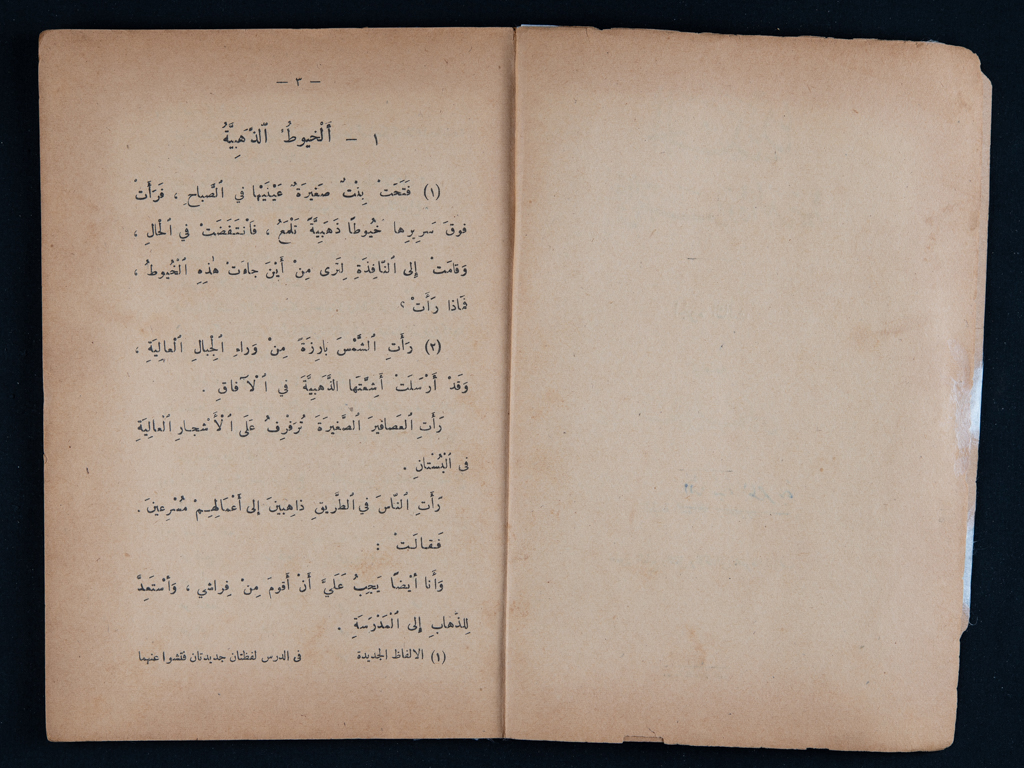 — ٣ —
١ – أَلْخيوطُ ٱلذَّهَبِيَّةُ
(١) فَتَحَتْ بِنْتٌ صَغيرَةٌ عَيْنَيْها في ٱلصَّباحِ ، فَرَأَتْ
فوقَ سَريرِها خُيُوطًا ذَهَبِيَّةً تَلْمَعُ ، فَٱنْتَفَضَتْ في ٱلحالِ ،
وَقامَتْ إلى ٱلنّافِذَةِ لِتَرى مِنْ أَيْنَ جاءَتْ هٰذِهِ ٱلْخُيوطُ ،
فَماذا رَأَتْ ؟
(٢) رَأَتِ ٱلشَّمْسَ بارِزَةً مِنْ وَراءِ ٱلْجِبالِ ٱلْعالِيَةِ ،
وَقَدْ أَرْسَلَتْ أَشِعَّتَها الذَّهَبِيَّةَ في ٱلْآفاقِ .
رَأَتِ ٱلعَصافيرَ ٱلصَّغيرَةَ تُرَفْرِفُ عَلَى ٱلْأَشجارِ ٱلْعالِيَةِ
فى ٱلْبُسْتانِ .
رَأَتِ ٱلنّاسَ في ٱلطَّريقِ ذاهِبينَ إلى أَعْمالِهِمْ مُسْرِعينَ .
فَقالَتْ :
وَأَنا أَيْضًا يَجِبُ عَلَيَّ أَنْ أَقومَ مِنْ فِراشي ، وَأَسْتَعِدَّ
لِلذَّهابِ إلى ٱلْمَدْرَسَةِ .
(١) الالفاظ الجديدة فى الدرس لفظتان جديدتان فتشوا عنهما